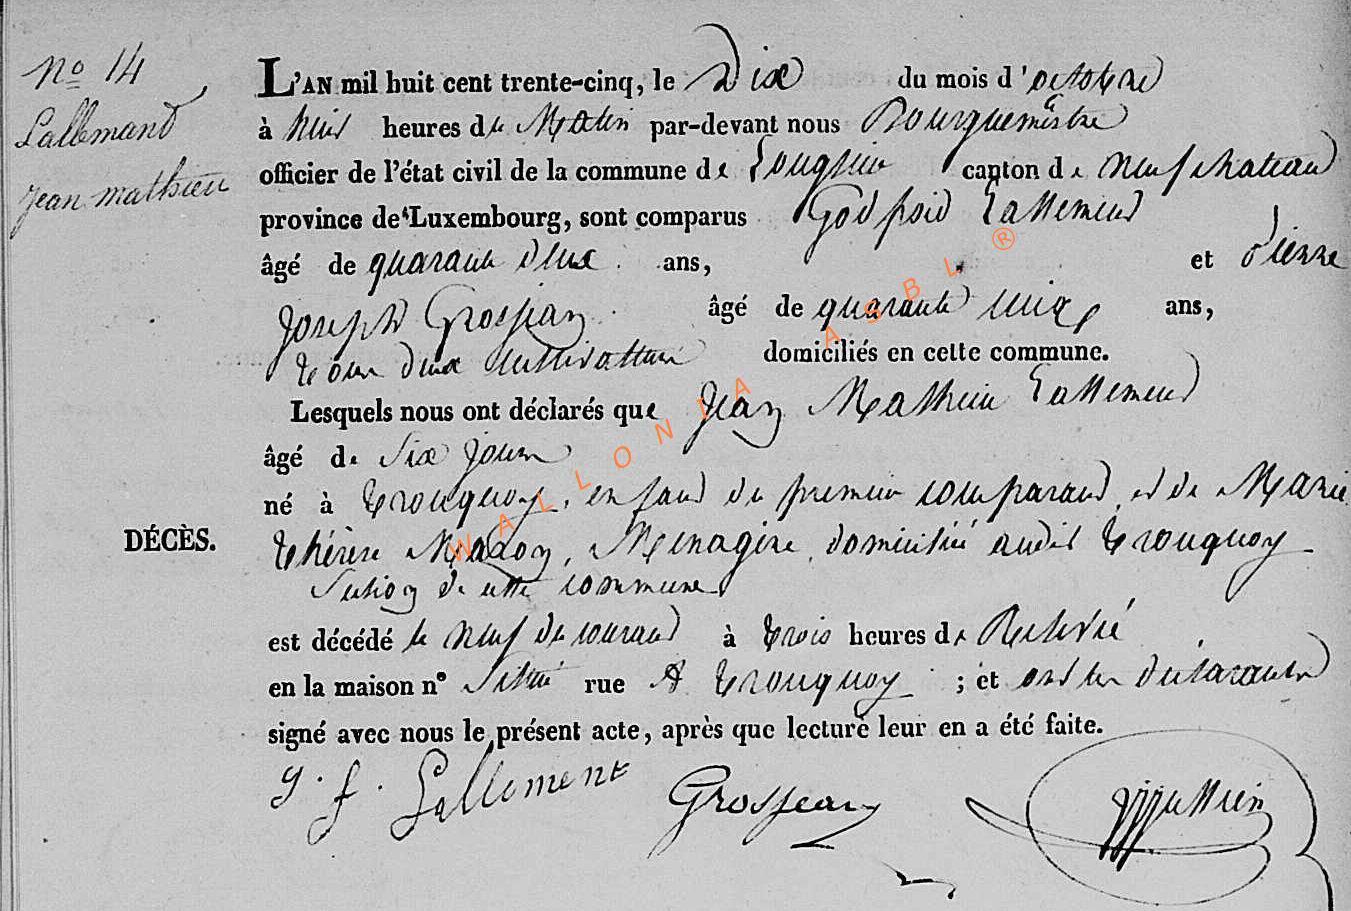 No 14
Lallemand
Jean mathieu
L'AN mil huit cent trente-cinq, le Dix du mois d'octobre
à heures du Matin par-devant nous Bourguemestre
officier de l'état civil de la commune de Longlier canton de neufchateau
province de Luxembourg, sont comparus Godfroid Lallemend
âgé de quarante deux ans, et Pierre
Joseph Grosjean âgé de quarante ans,
tous deux cultivateurs domiciliés en cette commune.
Lesquels nous ont déclarés que Jean Mathieu Lallemend
âgé de Six jours
né à Tronquoy, enfant du premier comparant et de Marie
DÉCÈS.
Thérèse Menagère domiciliée audit Tronquoy
Section de cette commune
est décédé le neuf du courant à trois heures de Relevée
en la maison n° Située rue A Tronquoy ; et ont les déclarants
signé avec nous le présent acte, après que lecture leur en a été faite.
g. f. Lallement Grosjean
WALLONIA ASBL ®